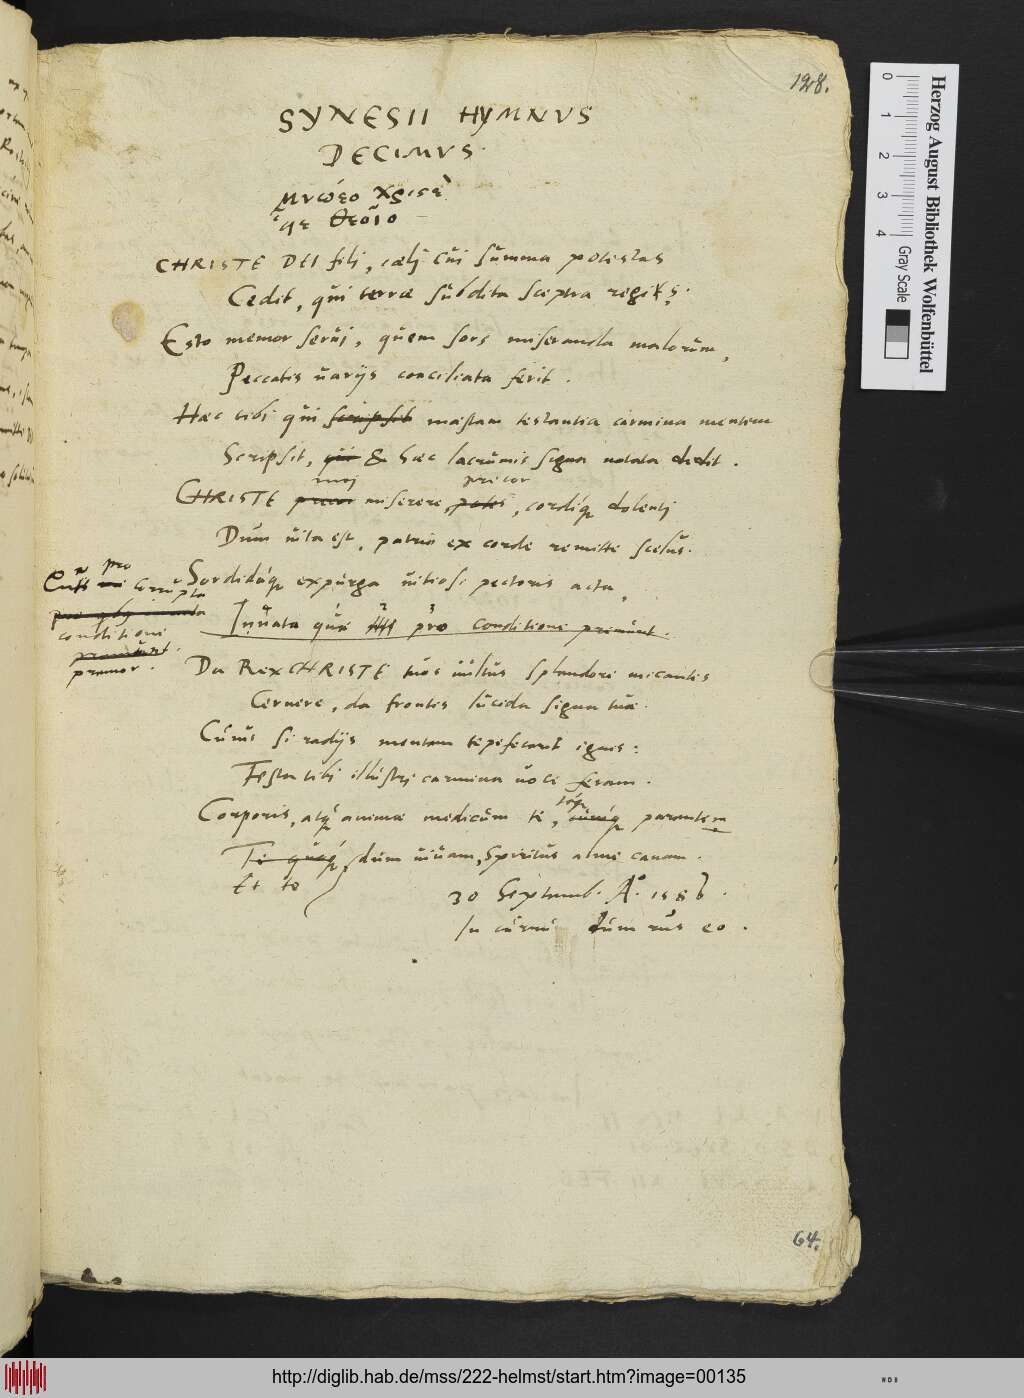 128.
SYNESII HYMNVS
DECIMVS.
μνώεο χριστὲ
υἱὲ θεοῖο
CHRISTE DEI fili, cœli cui summa potestas
Cedit, qui terræ subdita sceptra regis.
Esto memor serui, quem sors miseranda malorum,
Peccatis uarijs conciliata ferit.
Hæc tibi qui scripsit mæstam testantia carmina mentem
Scripsit, qui & hæc lacrumis signa notata dedit.
mej precor
CHRISTE precor miserere, potes, cordiq; dolenti
Dum uita est, patrio ex corde remitte scelus.
Sordidaq; expurga uitiosi pectoris acta,
Innata quæ pro conditione premunt.
pro
corrupta
conditione
premunt.
premor.
Da Rex CHRISTE tuos uultus splendore micantis
Cernere, da frontis lucida signa tuæ.
Cuius si radijs mentem tepefecerit ignis:
Festa tibi illustri carmina uoce feram.
Corporis, atq; animæ medicum te, parentem
Te dum uiuam, Spiritus alme canam.
Et te
30 Septemb. A°. 1586.
In curru dum rus eo.
64.
Herzog August Bibliothek Wolfenbüttel
0 1 2 3 4
Gray Scale
http://diglib.hab.de/mss/222-helmst/start.htm?image=00135
WDB